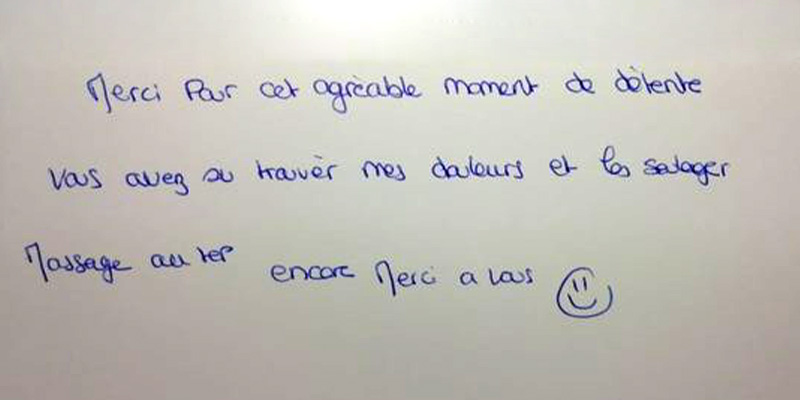 Merci Pour cet agrèable moment de dètente
Vous avez su trouvèr mes douleurs et les soulager
Massage au top encore Merci a vous